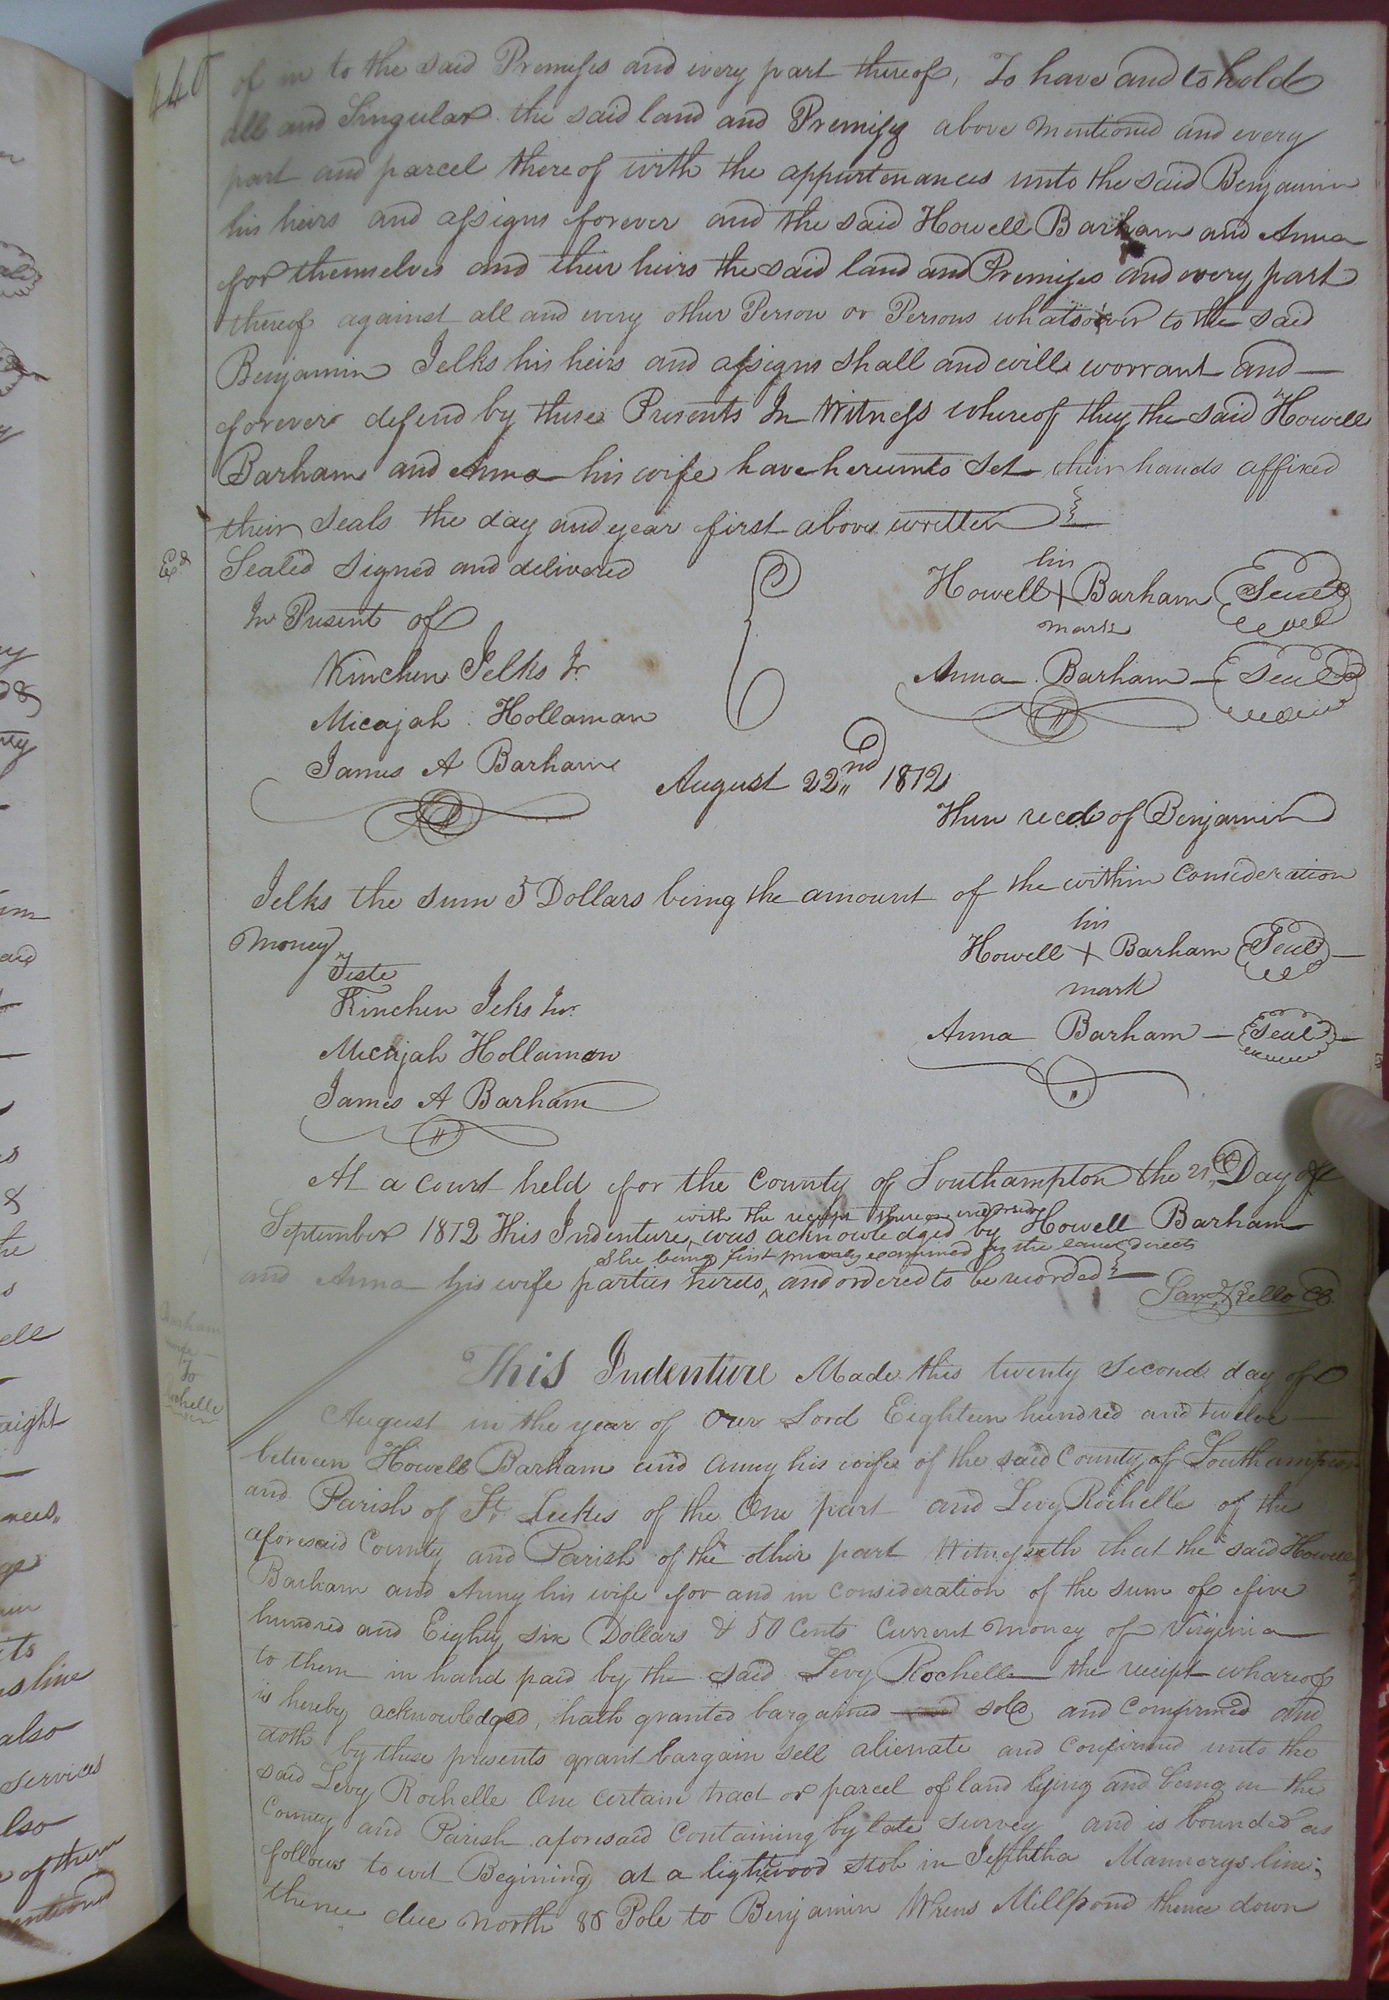 440
of in to the said Premises and every part thereof, To have and to hold
all and Singular the said land and Premises above mentioned and every
part and parcel thereof with the appurtenances unto the said Benjamin
his heirs and assigns forever and the said Howell Barham and Anna
for themselves and their heirs the said land and Premises and every part
thereof against all and every other Person or Persons whatsoever to the said
Benjamin Jelks his heirs and assigns shall and will worrant and
forever defend by these Presents In Witness whereof they the said Howell
Barham and Anna his wife have hereunto Set their hands affixed
their Seals the day and year first above written
Exd
Sealed Signed and delivered
In Present of
Kinchen Jelks Jr
Micajah Hollaman
James A Barham
his
Howell + Barham Seal
mark
Anna Barham Seal
August 22nd 1812
Then recd of Benjamin
Jelks the sum 5 Dollars being the amount of the within Consideration
Money
Teste
Kinchen Jeks Jur
Micajah Hollaman
James A Barham
his
Howell + Barham Seal
mark
Anna Barham Seal
At a court held for the County of Southampton the 21st Day of
with the receipt thereon indorsed
September 1812 This Indenture was acknowledged by Howell Barham
She being first privily examined as the law directs
and Anna his wife parties hereto, and ordered to be recorded
Saml Kello CC
Barham
wife
To
Rochelle
This Indenture Made this twenty Second day of
August in the year of Our Lord Eighteen hundred and twelve
between Howell Barham and Anny his wife of the said County of Southampton
and Parish of St Lukes of the One part and Levy Rochelle of the
aforesaid County and Parish of the other part Witnesseth that the said Howell
Barham and Anny his wife for and in Consideration of the sum of five
hundred and Eighty six Dollars & 50 Cents Current Money of Virginia
to them in hand paid by the said Levy Rochelle the recipt whareof
is hereby acknowledged, hath granted bargained sold and Confirmed and
doth by these presents grant bargain sell alienate and Confirmed unto the
said Levy Rochelle One Certain tract or parcel of land lying and being in the
County and Parish aforesaid Containing by late Survey and is bounded as
follows to wit Begining at a lightwood Stob in Jephtha Mannerys line;
thence due North 86 Pole to Benjamin Whens Millpond thence down